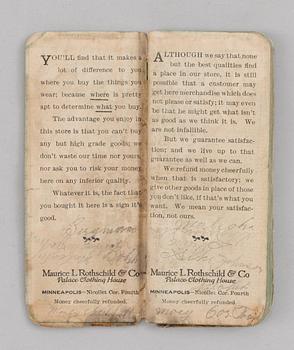 YOU'LL find that it makes a
lot of difference to you
where you buy the things you
wear; because where is pretty
apt to determine what you buy.
The advantage you enjoy in
this store is that you can't buy
any but high grade goods; we
don't waste our time nor yours,
nor ask you to risk your money
here on any inferior quality.
Whatever it is, the fact that
you bought it here is a sign it's
good.
Maurice L Rothschild & Co
Palace Clothing House
MINNEAPOLIS—Nicollet Cor. Fourth
Money cheerfully refunded.
ALTHOUGH we say that none
but the best qualities find
a place in our store, it is still
possible that a customer may
get here merchandise which does
not please or satisfy; it may even
be that he might get what isn't
as good as we think it is. We
are not infallible.
But we guarantee satisfac-
tion; and we live up to that
guarantee as well as we can.
We refund money cheerfully
when that is satisfactory; we
give other goods in place of those
you don't like, if that's what you
want. We mean your satisfac-
tion, not ours.
Maurice L Rothschild & Co
Palace Clothing House
MINNEAPOLIS—Nicollet Cor. Fourth
Money cheerfully refunded.